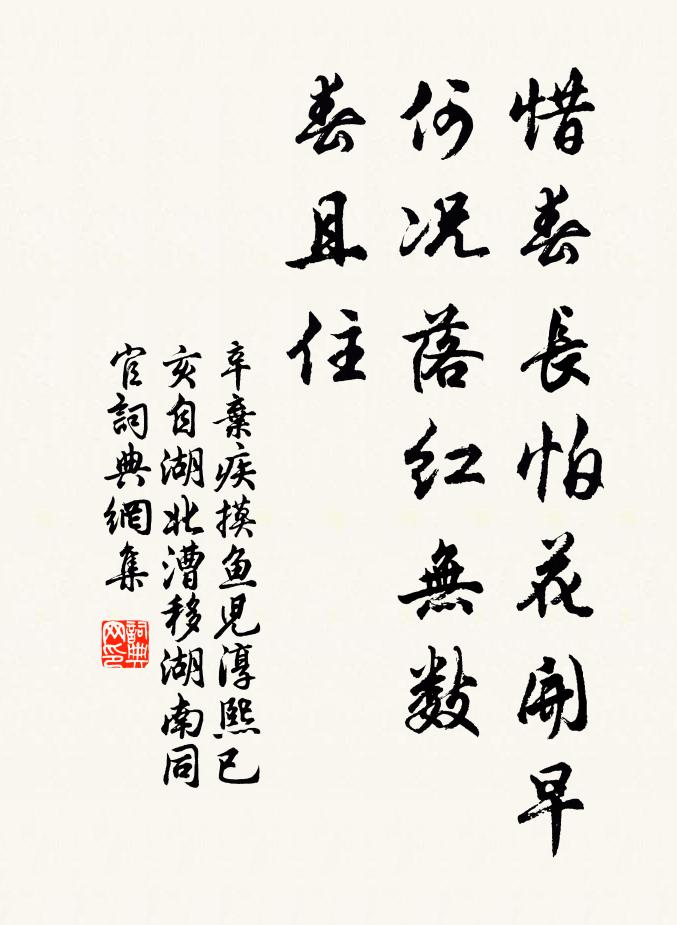 惜春長怕花開早
何况落红無數
春且住
辛棄疾摸鱼兒淳熙已
亥自湖北漕移湖南同
官詞典網集
詞典
网印